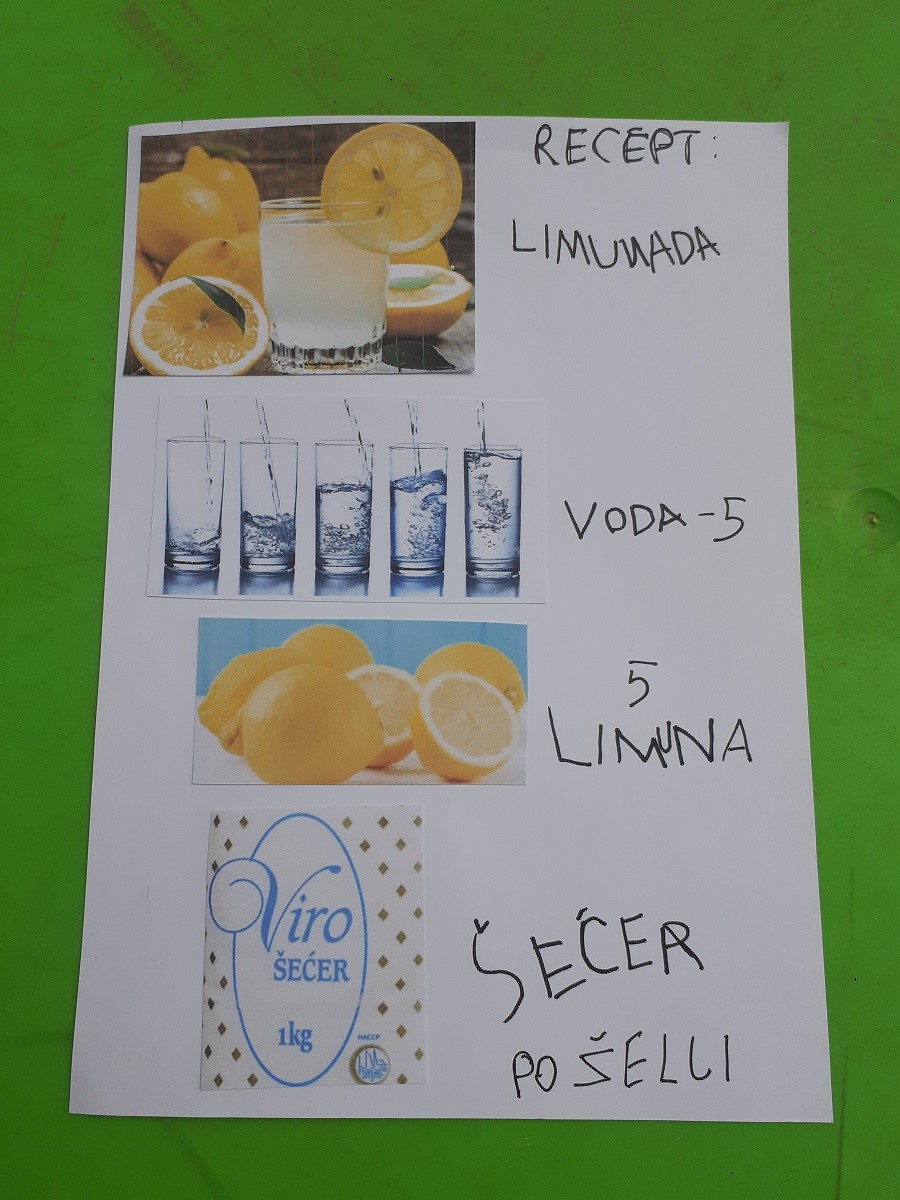 RECEPT:
LIMUNADA
VODA-5
5
LIMUNA
Viro
ŠEĆER
1kg
HACCP
حلال
halal
ŠEĆER
PO ŠELLI